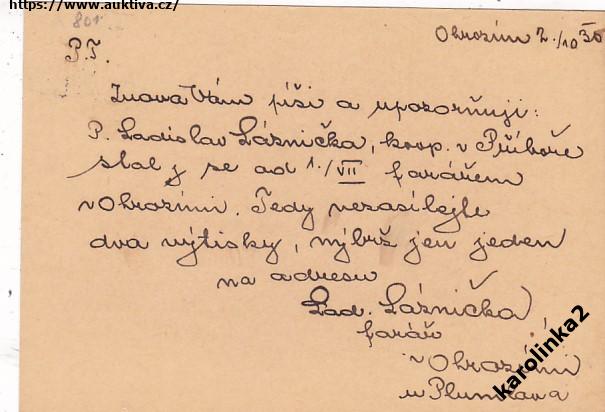 https://www.auktiva.cz/
801
Ohrozim 2./10 36
P.T.
Znova Vám píši a upozorňuji:
P. Ladislav Láznička, koop. v Příboře
stal se od 1./VII farářem
v Ohrozimi. Tedy nezasílejte
dva výtisky, nýbrž jen jeden
na adresu
Lad. Láznička
farář
v Ohrozimi
u Plumlova
karolinka2